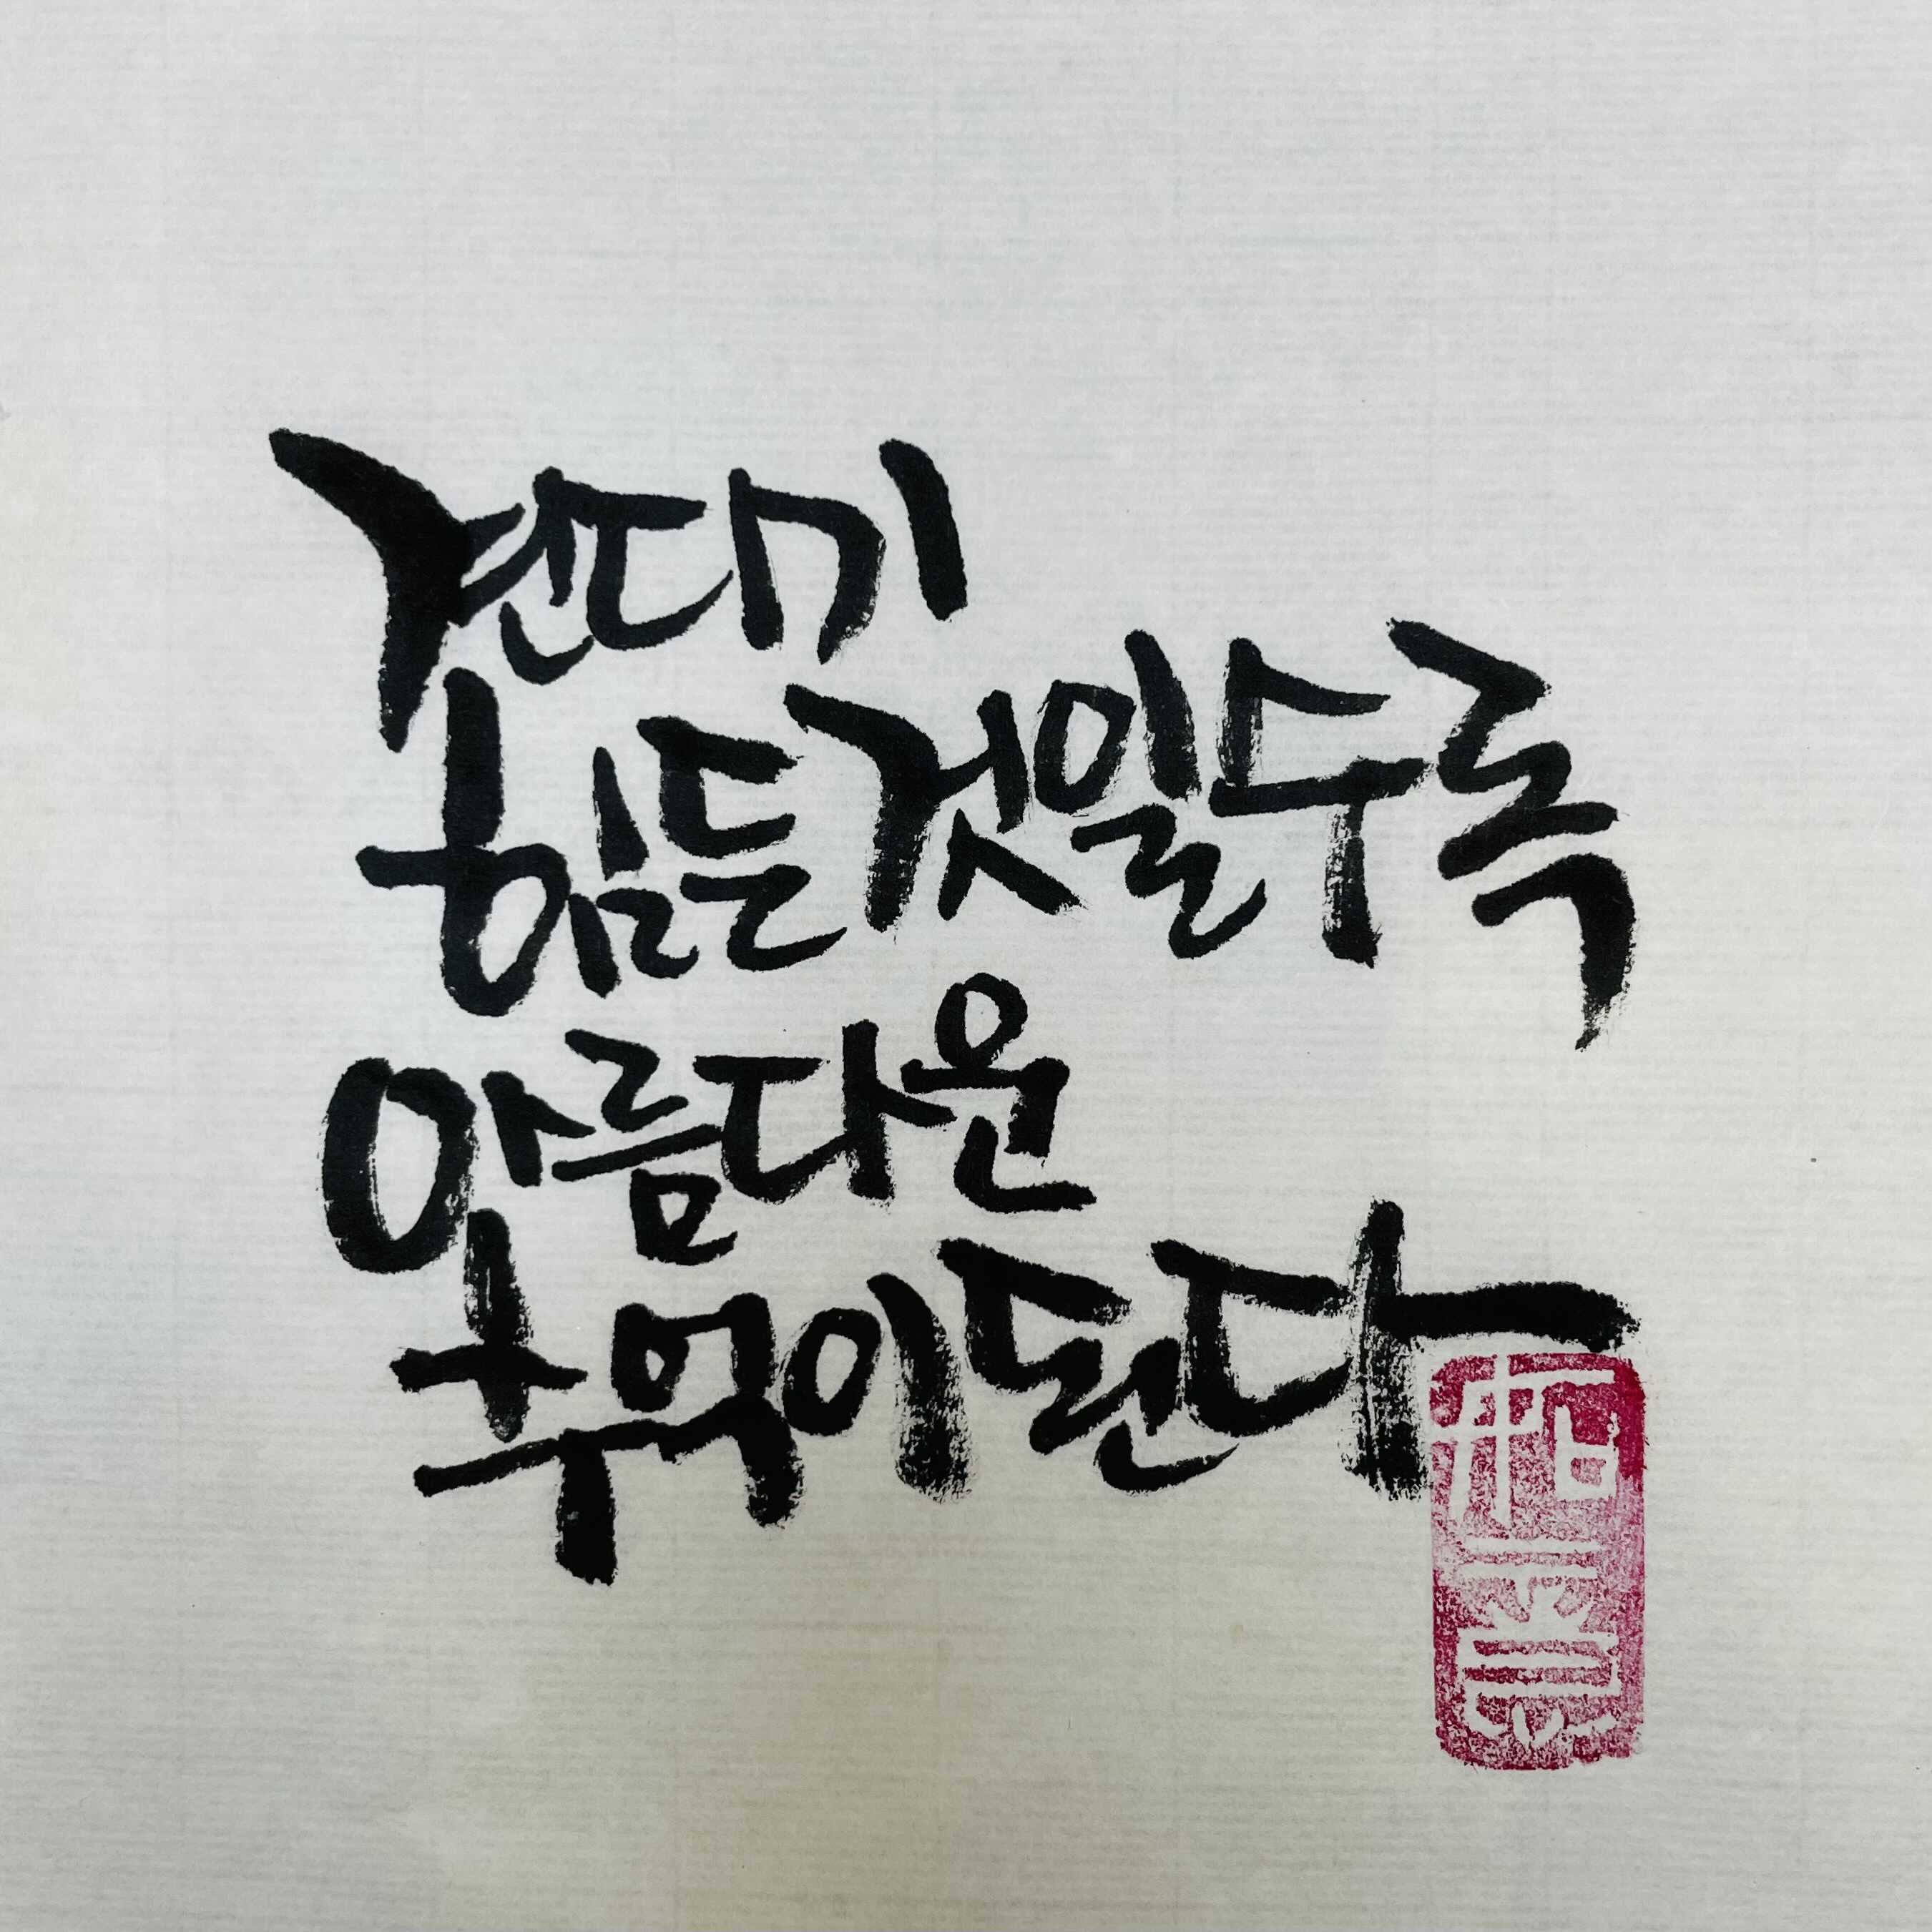 견디기
힘든 것일수록
아름다운
추억이 된다